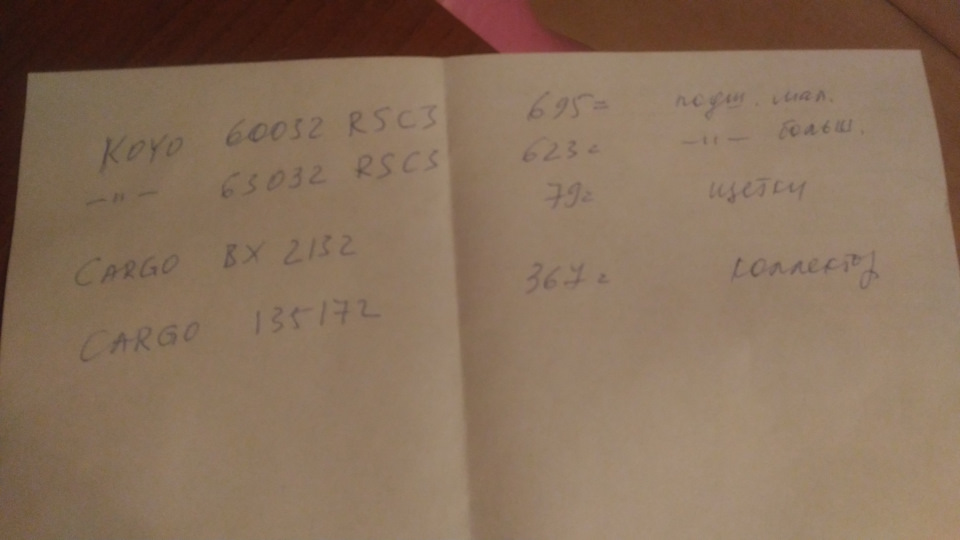 KOYO 60032 RSC3 695= подш. мал.
—"— 63032 RSC3 623= —"— больш.
CARGO BX 2132 79= щетки
CARGO 135172 367= коллектор